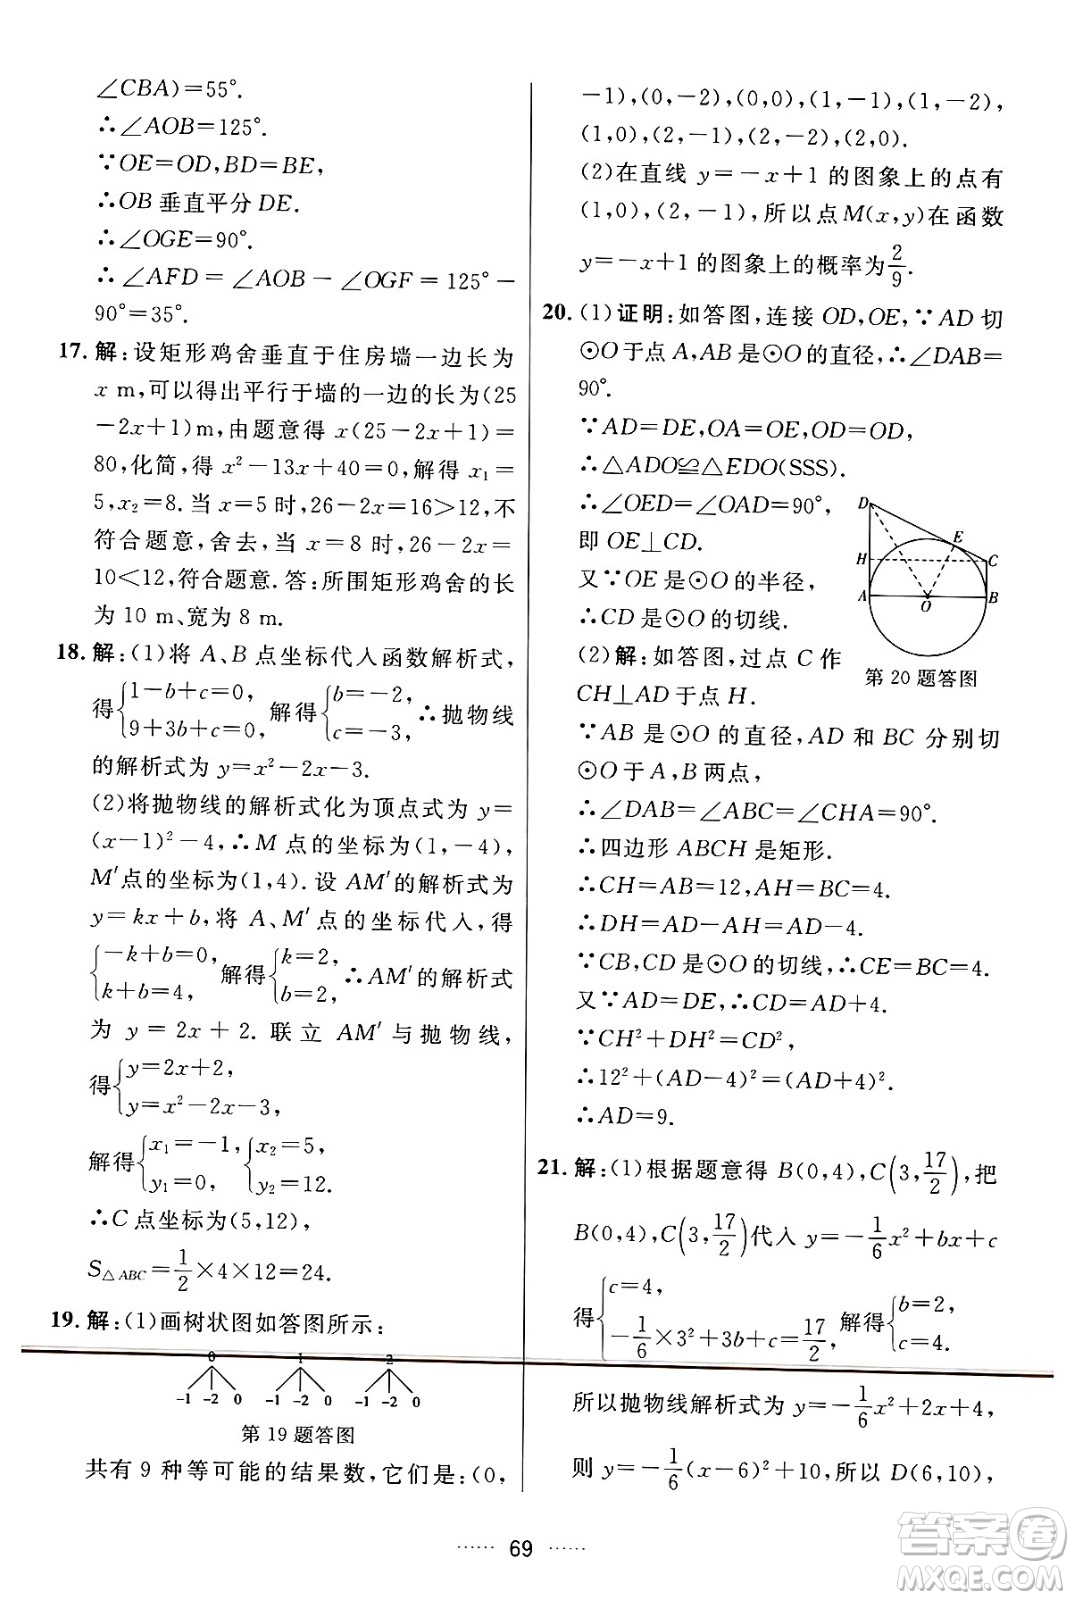 ∠CBA)=55°.
∴∠AOB=125°.
∵OE=OD,BD=BE,
∴OB 垂直平分 DE.
∴∠OGE=90°.
∴∠AFD=∠AOB－∠OGF=125°－
90°=35°.
17. 解:设矩形鸡舍垂直于住房墙一边长为
x m,可以得出平行于墙的一边的长为(25
－2x+1)m,由题意得 x(25－2x+1)=
80,化简,得 x²－13x+40=0,解得 x₁=
5,x₂=8.当 x=5 时,26－2x=16>12,不
符合题意,舍去,当 x=8 时,26－2x=
10<12,符合题意.答:所围矩形鸡舍的长
为 10 m、宽为 8 m.
18. 解:(1)将 A、B 点坐标代入函数解析式,
得{1－b+c=0, 9+3b+c=0, 解得{b=－2, c=－3, ∴抛物线
的解析式为 y=x²－2x－3.
(2)将抛物线的解析式化为顶点式为 y=
(x－1)²－4,∴M 点的坐标为(1,－4),
M′点的坐标为(1,4).设 AM′的解析式为
y=kx+b,将 A、M′点的坐标代入,得
{－k+b=0, k+b=4, 解得{k=2, b=2, ∴AM′的解析式
为 y=2x+2.联立 AM′与抛物线,
得{y=2x+2, y=x²－2x－3,
解得{x₁=－1, y₁=0, {x₂=5, y₂=12.
∴C 点坐标为(5,12),
S△ABC=1/2×4×12=24.
19. 解:(1)画树状图如答图所示:
0 1 2
-1 -2 0 -1 -2 0 -1 -2 0
第 19 题答图
共有 9 种等可能的结果数,它们是:(0,
－1),(0,－2),(0,0),(1,－1),(1,－2),
(1,0),(2,－1),(2,－2),(2,0).
(2)在直线 y=－x+1 的图象上的点有
(1,0),(2,－1),所以点M(x,y)在函数
y=－x+1 的图象上的概率为2/9.
20. (1)证明:如答图,连接 OD,OE,∵AD 切
⊙O 于点 A,AB 是⊙O 的直径,∴∠DAB=
90°.
∵AD=DE,OA=OE,OD=OD,
∴△ADO≌△EDO(SSS).
∴∠OED=∠OAD=90°,
即 OE⊥CD.
又∵OE 是⊙O 的半径,
∴CD 是⊙O 的切线.
(2)解:如答图,过点 C 作
CH⊥AD 于点 H.
D
E
H
C
A
O
B
第 20 题答图
∵AB 是⊙O 的直径,AD 和 BC 分别切
⊙O 于 A,B 两点,
∴∠DAB=∠ABC=∠CHA=90°.
∴四边形 ABCH 是矩形.
∴CH=AB=12,AH=BC=4.
∴DH=AD－AH=AD－4.
∵CB,CD 是⊙O 的切线,∴CE=BC=4.
又∵AD=DE,∴CD=AD+4.
∵CH²+DH²=CD²,
∴12²+(AD－4)²=(AD+4)².
∴AD=9.
21. 解:(1)根据题意得 B(0,4),C(3,17/2),把
B(0,4),C(3,17/2)代入 y=－1/6x²+bx+c
得{c=4, －1/6×3²+3b+c=17/2, 解得{b=2, c=4,
所以抛物线解析式为 y=－1/6x²+2x+4,
则 y=－1/6(x－6)²+10,所以 D(6,10),
······ 69 ······
答案卷
MXQE.COM